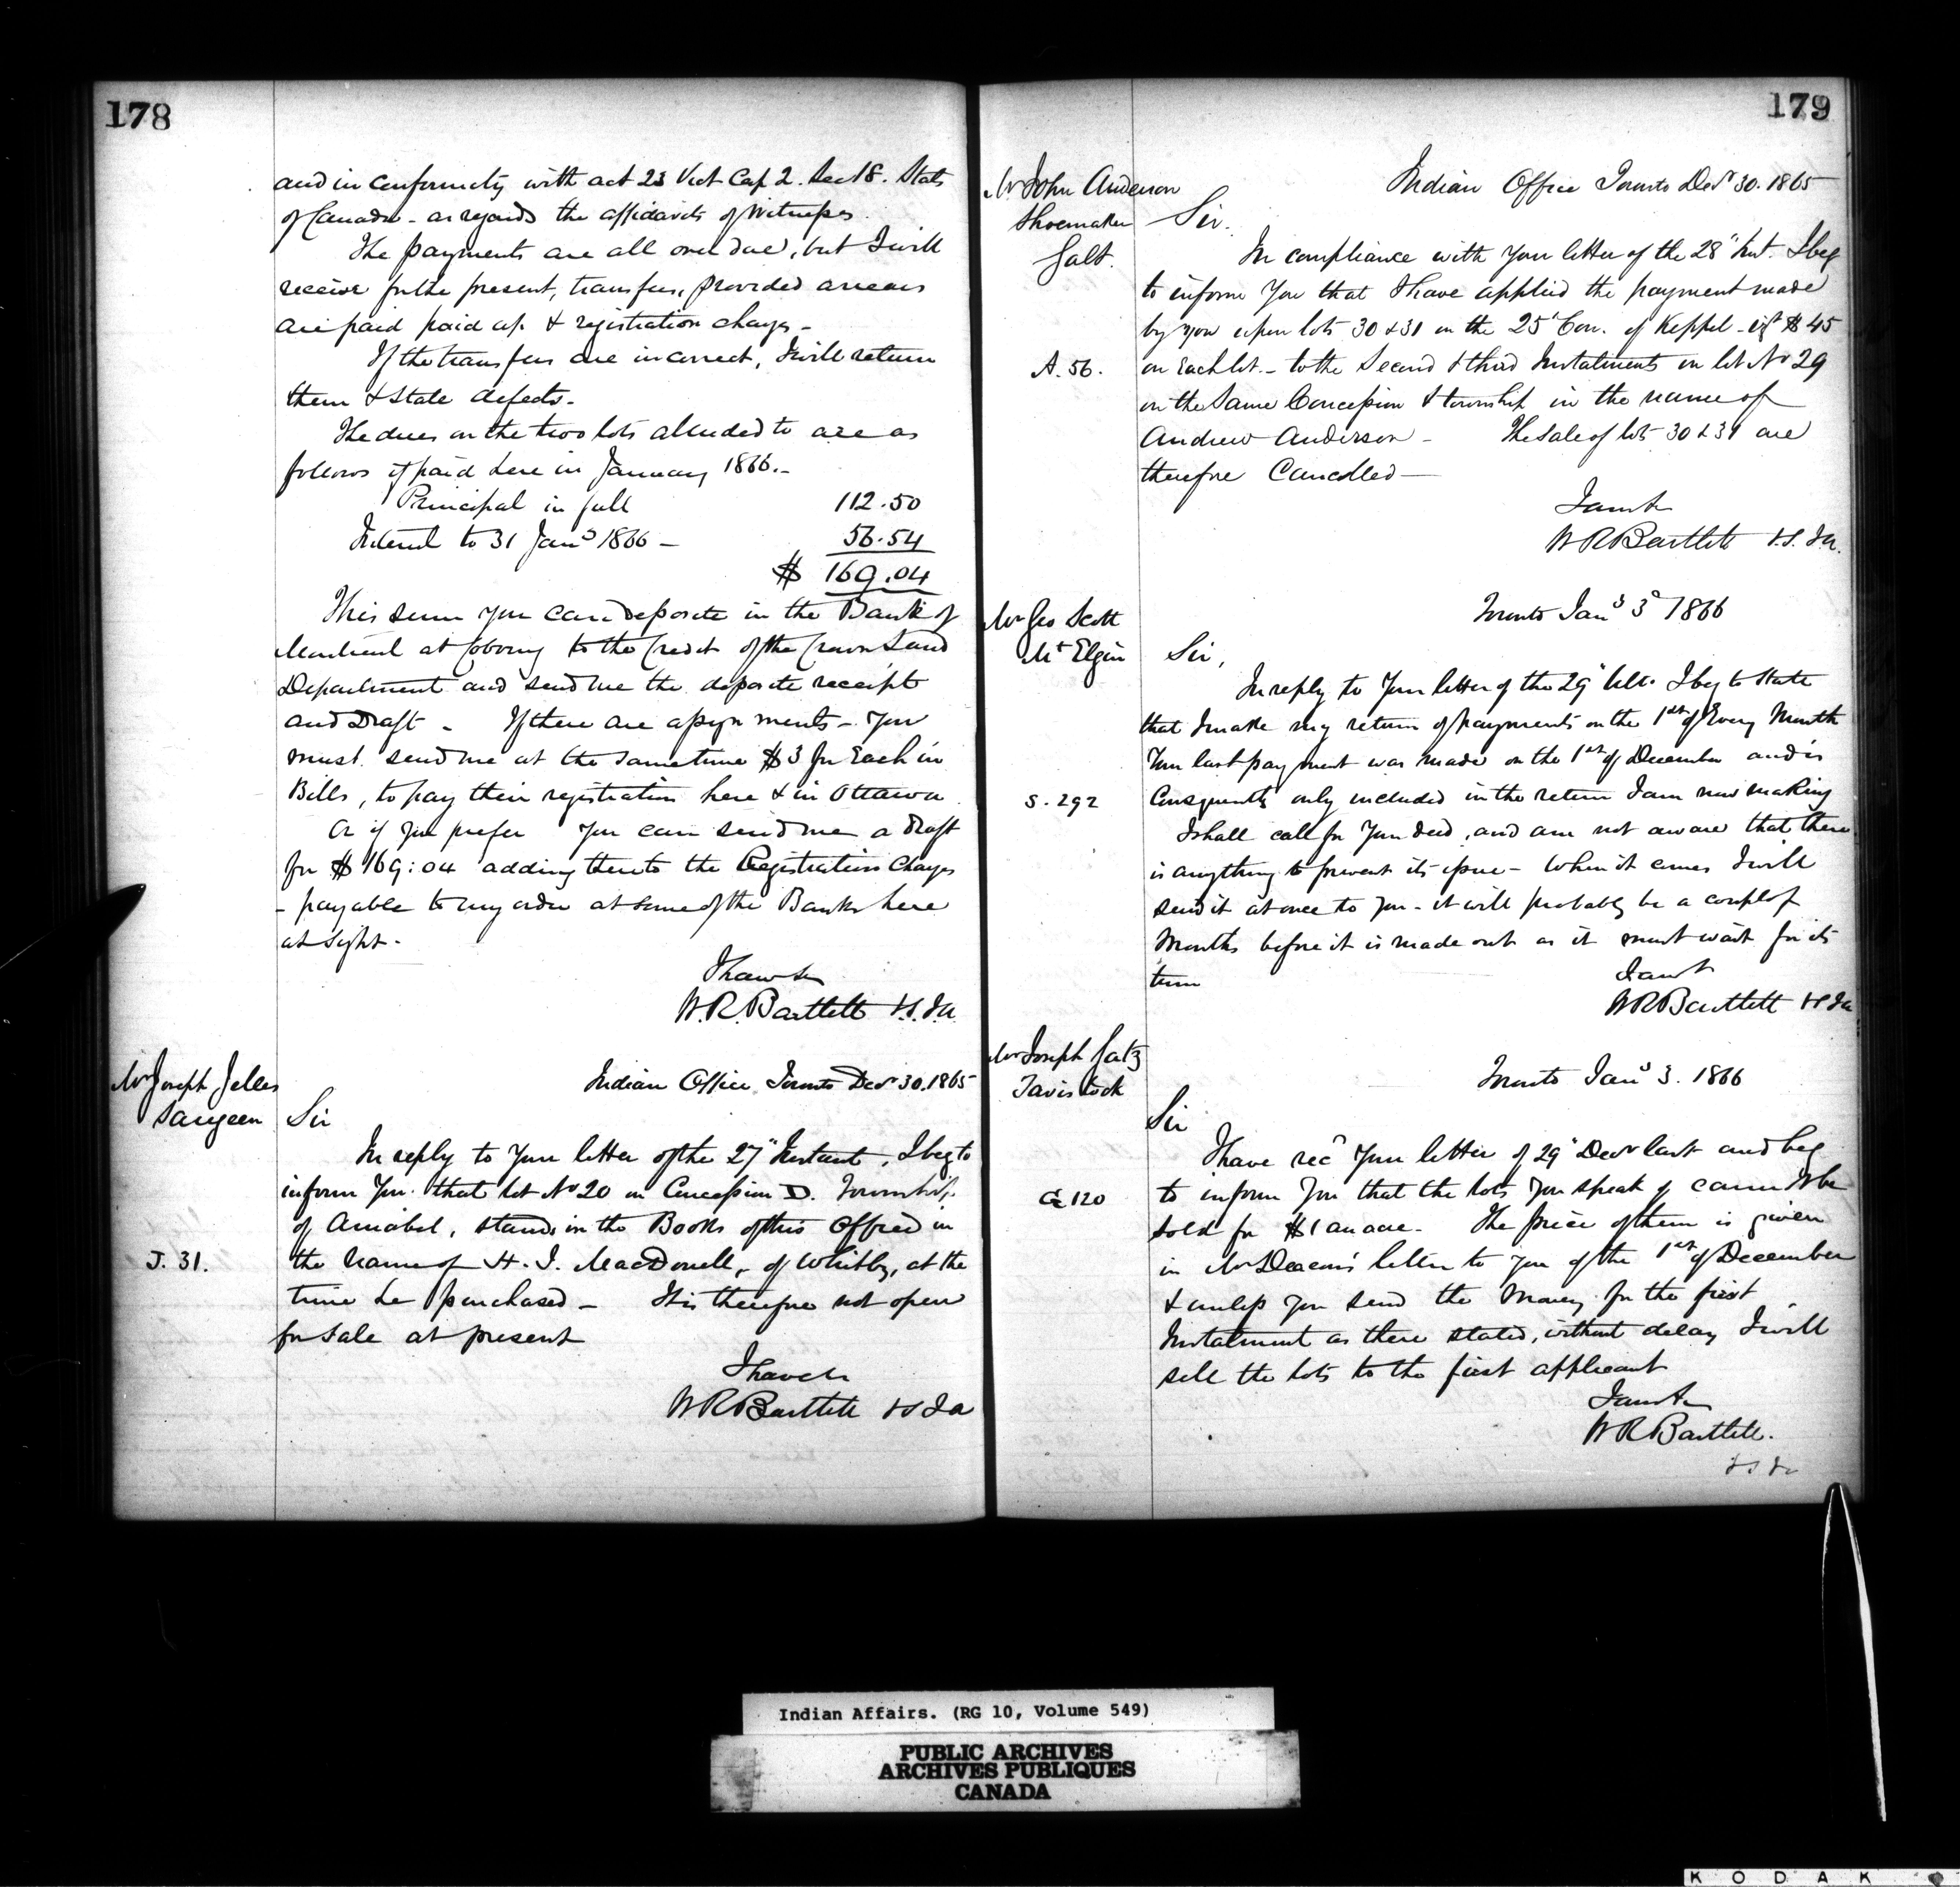 178
and in conformity with act 23 Vict Cap 2. Sec 18. Stats
of Canada - as regards the affidavits of Witnesses.
The payments are all over due, but I will
receive for the present, transfers, provided arrears
are paid paid up & registration charges -
If the transfers are incorrect, I will return
them & state defects -
The dues on the two lots alluded to are as
follows if paid here in January 1866. -
Principal in full 112.50
Interest to 31 Jany 1866 - 56.54
$ 169.04
This sum you can deposite in the Bank of
Montreal at Cobourg to the credit of the Crown Land
Department and send me the deposite receipt
and Draft - If there are assignments - you
must send me at the same time $3 for Each in
Bills, to pay their registration here & in Ottawa
Or if you prefer you can send me a draft
for $169:04 adding thereto the Registration Charges
- payable to my order at some of the Banks here
at sight -
I have &c
W.R. Bartlett V.S.I.A.
Mr Joseph Jelles
Saugeen
Indian Office Toronto Decr 30. 1865
Sir
In reply to your letter of the 27" Instant, I beg to
inform you that lot No 20 in Concession D. Township
of Amabel, stands in the Books of this Office in
J. 31.
the name of H. J. MacDonell, of Whitby, at the
time he purchased - It is therefore not open
for sale at present
I have &c
W R Bartlett V S I A
179
Mr John Anderson
Shoemaker
Galt.
Indian Office Toronto Decr 30. 1865
Sir.
In compliance with your letter of the 28" Inst. I beg
to inform you that I have applied the payment made
by you upon lots 30 & 31 in the 25" Con. of Keppel - $45
A. 56.
on Each lot. - to the Second & third Instalments on lot No 29
on the same Concession & township in the name of
Andrew Anderson - The sale of lots 30 & 31 are
therefore Cancelled -
I am &c
W R Bartlett V.S. I.A.
Mr Geo Scott
Mt Elgin
Toronto Jany 3d 1866
Sir,
In reply to your letter of the 29" Ulto I beg to state
that I make my return of payments on the 1st of Every Month
Your last payment was made on the 1st of December and is
S. 292
Consequently only included in the return I am now making
I shall call for your deed, and am not aware that there
is anything to prevent its issue - When it comes I will
send it at once to you - it will probably be a couple of
Months before it is made out as it must wait for its
turn
I am &c
W R Bartlett V S I A
Mr Joseph Gatz
Tavistock
Toronto Jany 3. 1866
Sir
I have recd your letter of 29" Decr last and beg
G 120
to inform you that the lots you speak of cannot be
sold for $1 an acre - The price of them is given
in Mr Deacon's letter to you of the 1st of December
& unless you send the Money for the first
Instalment as there stated, without delay I will
sell the lots to the first applicant
I am &c
W R Bartlett.
V S I A
Indian Affairs. (RG 10, Volume 549)
PUBLIC ARCHIVES
ARCHIVES PUBLIQUES
CANADA
KODAK